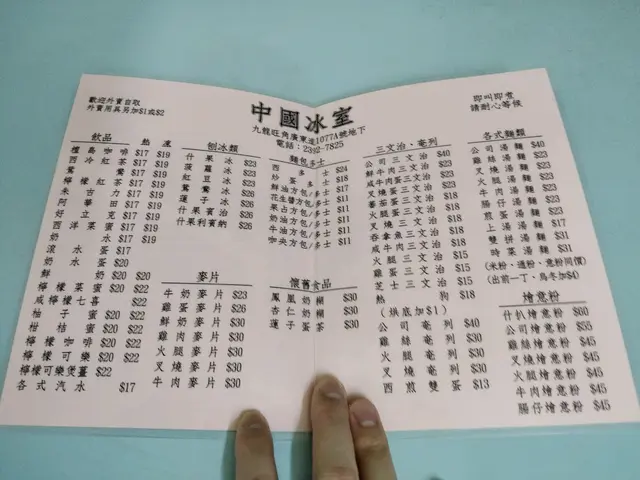 歡迎外賣自取
外賣用具另加$1或$2
中國冰室
九龍旺角廣東道1077A號地下
電話：2392-7825
即叫即煮
請耐心等候
飲品 熱 凍
檀島咖啡 $17 $19
西冷紅茶 $17 $19
鴛鴦 $17 $19
檸檬紅茶 $17 $19
朱古力 $17 $19
阿華田 $17 $19
好立克 $17 $19
西洋菜蜜 $17 $19
奶水 $17 $19
滾水蛋 $17
奶水蛋 $20
鮮奶 $20 $20
檸檬菜蜜 $20 $22
咸檸檬七喜 $22
柚子蜜 $20 $22
柑桔蜜 $20 $22
檸檬咖啡 $20 $22
檸檬可樂 $20 $22
檸檬可樂煲薑 $22
各式汽水 $17
刨冰類
什果冰 $23
菠蘿冰 $23
紅豆冰 $23
鴛鴦冰 $26
蓮子冰 $26
什果賓治 $26
什果利賓納 $26
麥片
牛奶麥片 $23
雞蛋麥片 $26
鮮奶麥片 $30
雞肉麥片 $30
火腿麥片 $30
叉燒麥片 $30
牛肉麥片 $30
麵包多士
西多士 $24
炒蛋多士 $18
鮮油方包/多士 $17
花生醬方包/多士 $11
果占方包/多士 $11
奶油方包/多士 $11
牛油方包/多士 $11
咖央方包/多士 $11
懷舊食品
鳳凰奶糊 $30
杏仁奶糊 $30
蓮子蛋茶 $30
三文治·奄列
公司三文治 $40
鮮牛肉三文治 $23
咸牛肉蛋三文治 $23
叉燒蛋三文治 $18
蕃茄蛋三文治 $18
火腿蛋三文治 $18
叉燒三文治 $18
吞拿魚三文治 $18
咸牛肉三文治 $18
火腿三文治 $15
雞蛋三文治 $15
芝士三文治 $15
熱狗 $18
(烘底加$1)
公司奄列 $40
雞絲奄列 $30
火腿奄列 $30
叉燒奄列 $30
西煎雙蛋 $13
各式麵類
公司湯麵 $40
雞絲湯麵 $23
叉燒湯麵 $23
火腿湯麵 $23
牛肉湯麵 $23
腸仔湯麵 $23
煎蛋湯麵 $23
上湯湯麵 $17
雙拼湯麵 $31
時菜湯麵 $31
(米粉、通粉、意粉同價)
(出前一丁、烏冬加$4)
燴意粉
什扒燴意粉 $60
公司燴意粉 $55
雞絲燴意粉 $45
叉燒燴意粉 $45
火腿燴意粉 $45
牛肉燴意粉 $45
腸仔燴意粉 $45